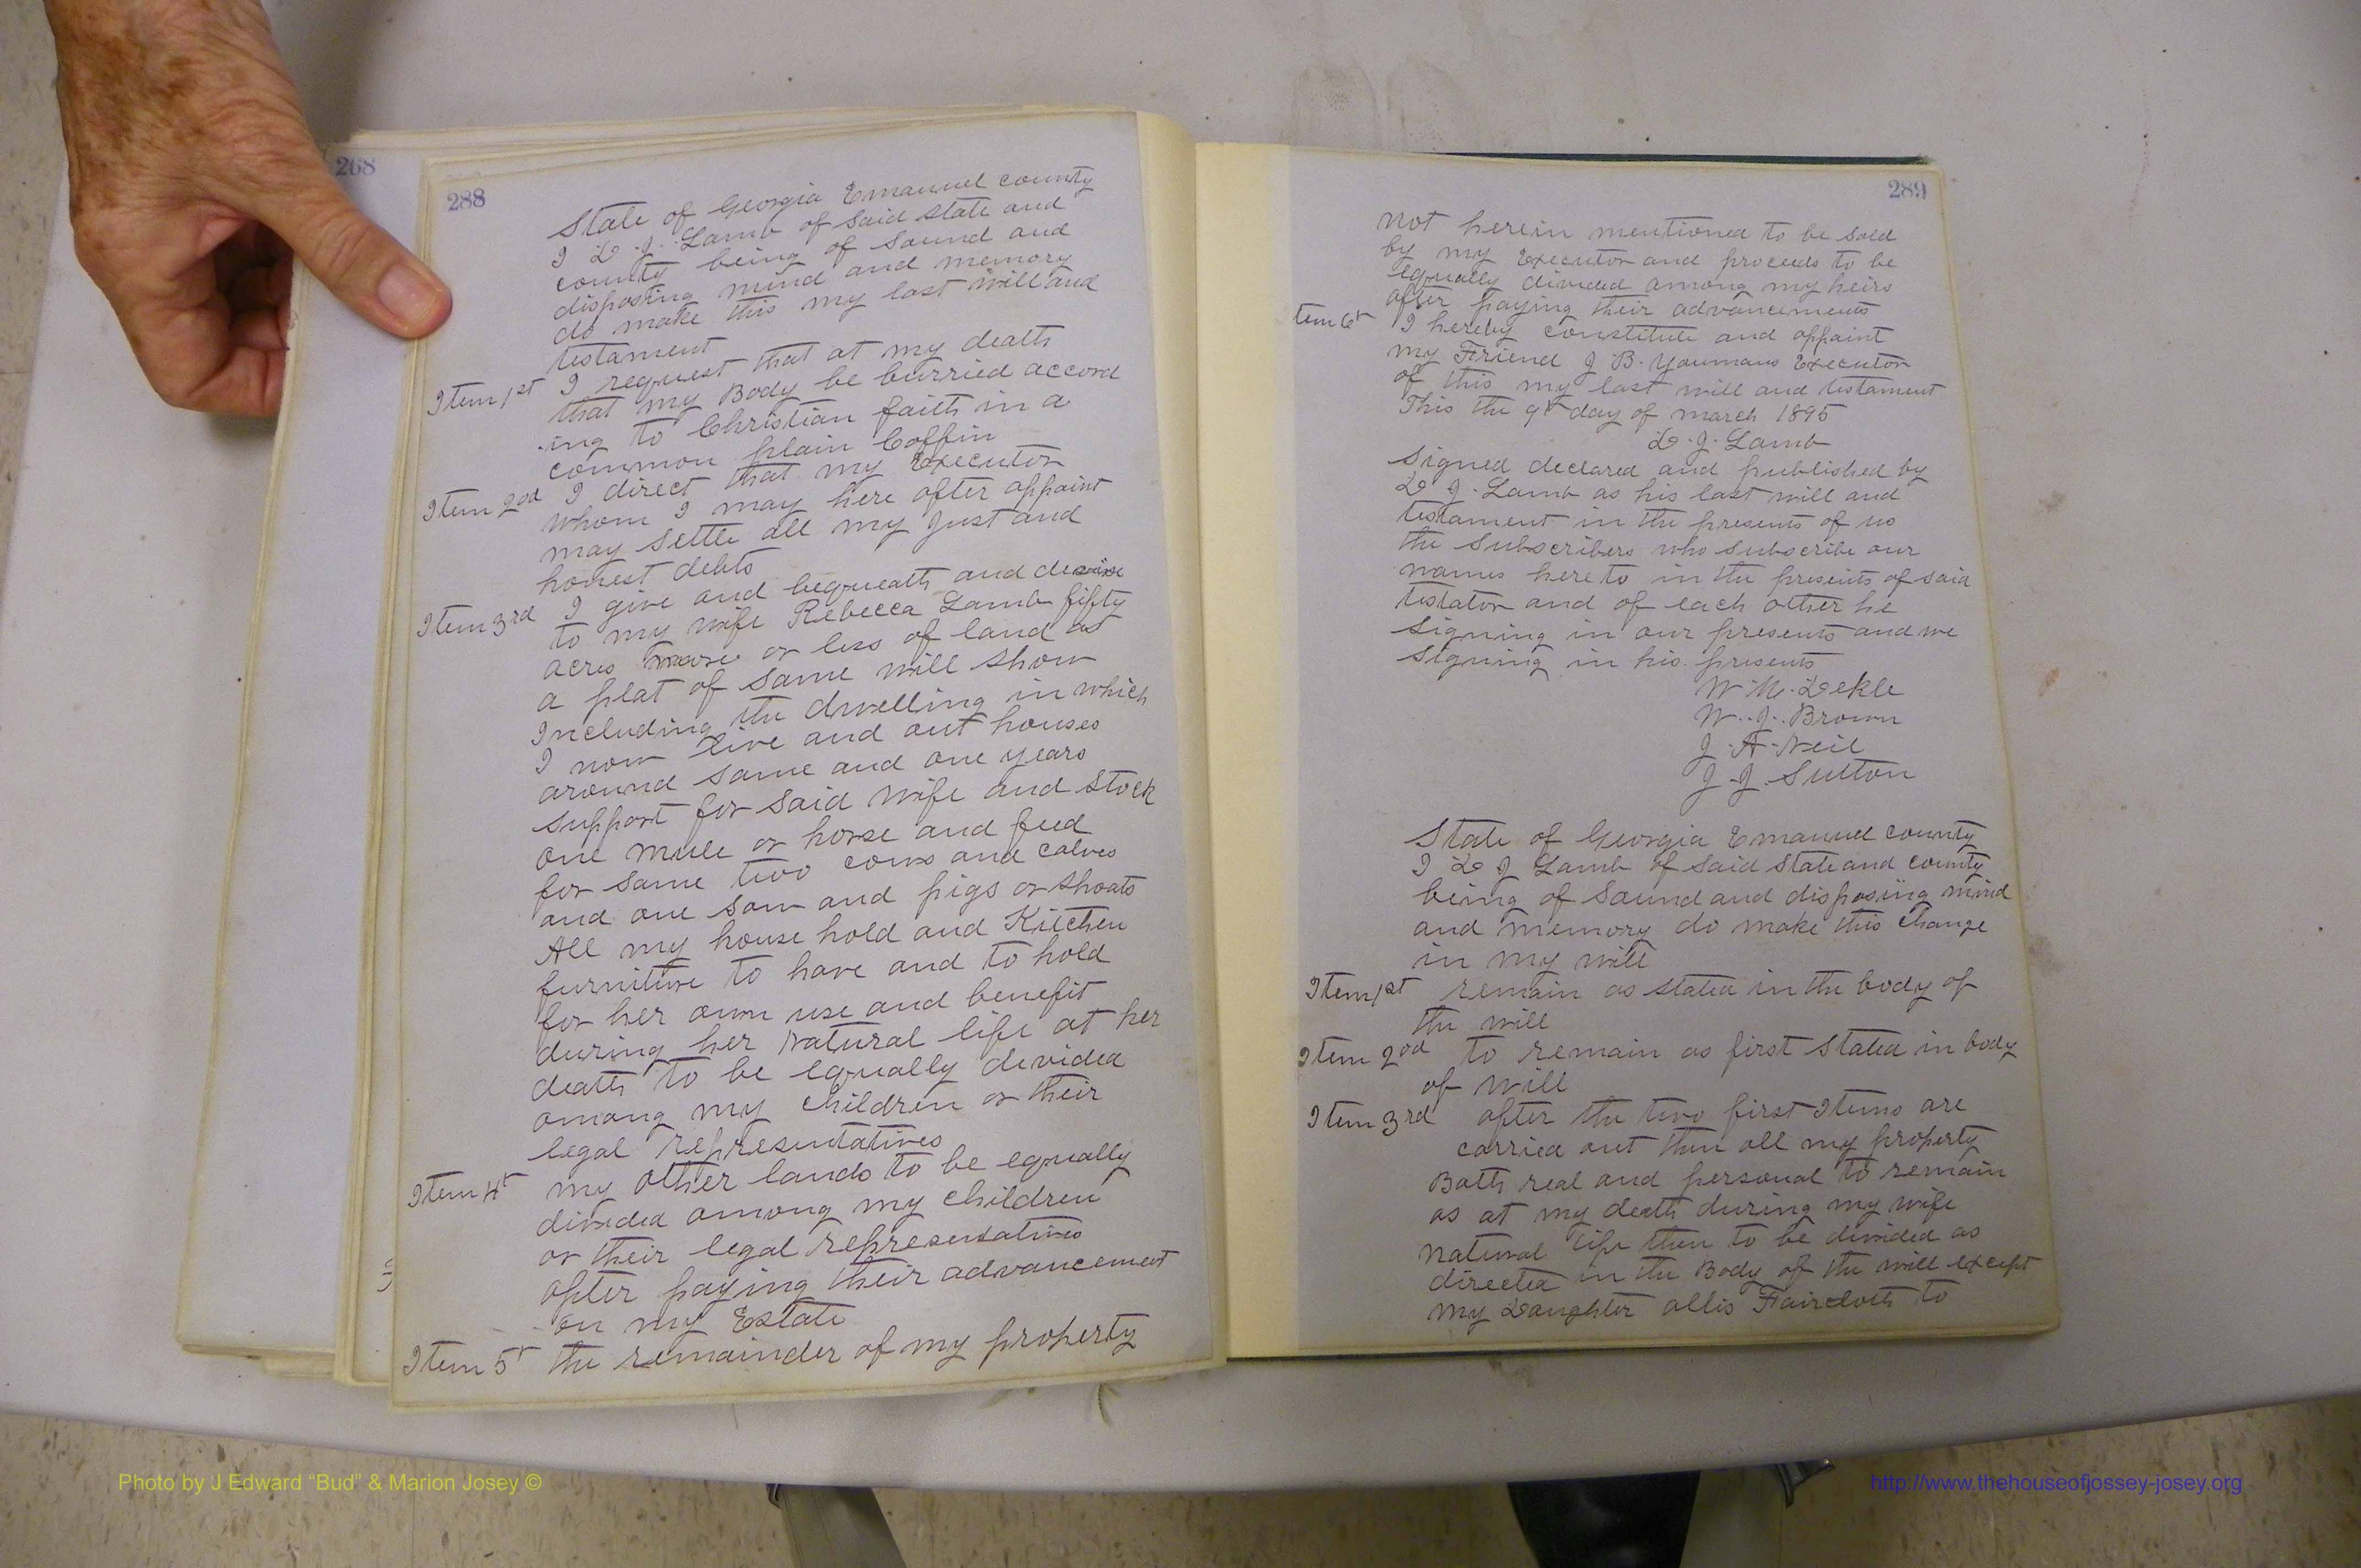 268
288
State of Georgia Emanuel county
I D. J. Lamb of said state and
county being of sound and
disposing mind and memory
do make this my last will and
testament
Item 1st I request that at my death
that my Body be burried accord
-ing to Christian faith in a
common plain Coffin
Item 2nd I direct that my Executor
whom I may here after appoint
may settle all my Just and
honest debts
Item 3rd I give and bequeath and devise
to my wife Rebecca Lamb fifty
acres more or less of land as
a plat of same will show
Including the dwelling in which
I now live and out houses
around same and one years
support for said wife and stock
one mule or horse and feed
for same two cows and calves
and one sow and pigs or shoats
All my house hold and Kitchen
furniture to have and to hold
for her own use and benefit
during her Natural life at her
death to be equally devided
among my children or their
legal representatives
Item 4t my other lands to be equally
divided among my children
or their legal representatives
after paying their advancement
on my Estate
Item 5t the remainder of my property
289
not herein mentioned to be sold
by my Executor and proceeds to be
equally divided among my heirs
after paying their advancements
tem 6t I hereby constitute and appaint
my Friend J B. Youmans Executor
of this my last will and testament
This the 9t day of march 1895
D. J. Lamb
Signed declared and published by
D J. Lamb as his last will and
testament in the presents of us
the Subscribers who subscribe our
names here to in the presents of said
testator and of each other he
signing in our presents and we
signing in his presents
W. M. Dekle
W. J. Brown
J. A. Neil
J. J. Sutton
State of Georgia Emanuel county
I D J Lamb of said State and county
being of Sound and disposing mind
and memory do make this change
in my will
Item 1st remain as stated in the body of
the will
Item 2nd to remain as first stated in body
of will
Item 3rd after the two first Items are
carried out then all my property
Both real and personal to remain
as at my death during my wife
natural life then to be divided as
directed in the Body of the will except
my Daughter allis Faircloth to
Photo by J Edward “Bud” & Marion Josey ©
http://www.thehouseofjossey-josey.org